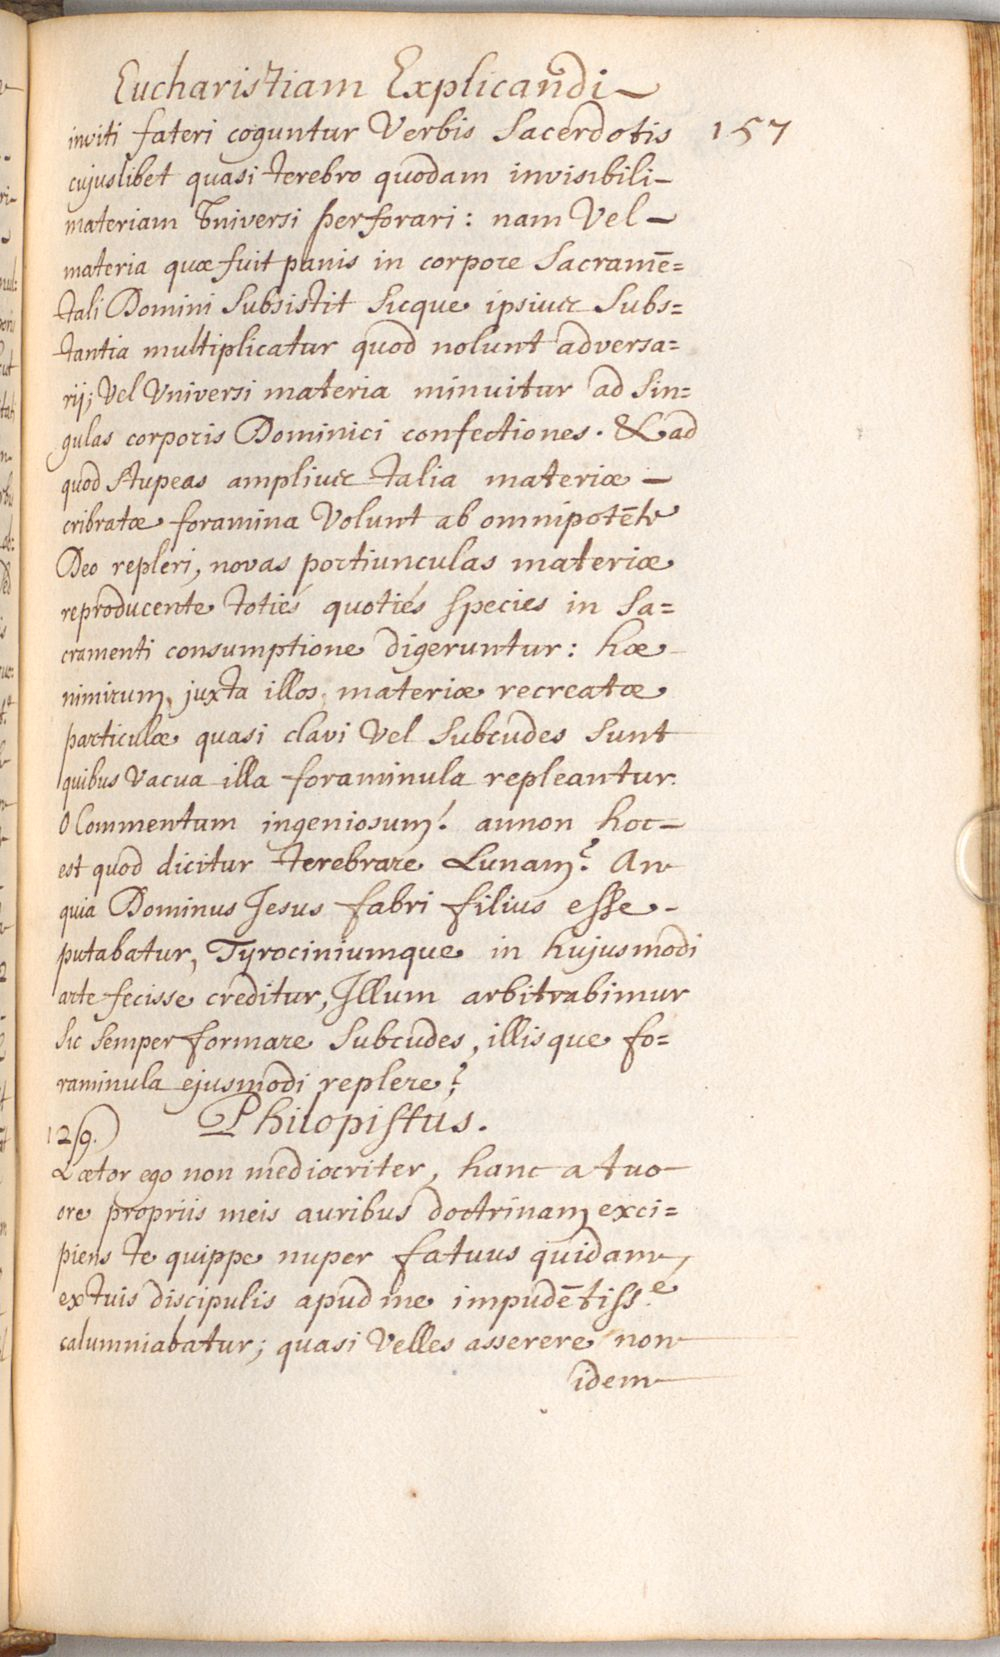 Eucharistiam Explicandi
157
inviti fateri coguntur Verbis Sacerdotis
cujuslibet quasi terebro quodam invisibili
materiam Vniversi perforari: nam Vel
materia quæ fuit panis in corpore Sacramē=
tali Domini Subsistit Sicque ipsius Subs=
tantia multiplicatur quod nolunt adversa=
rij; Vel Vniversi materia minuitur ad Sin=
gulas corporis Dominici confectiones. & ad
quod Stupeas amplius talia materiæ
cribratæ foramina Volunt ab omnipotēte
Deo repleri, novas portiunculas materiæ
reproducente totiés quotiés Species in Sa=
cramenti consumptione digeruntur: hæ
nimirum, juxta illos, materiæ recreatæ
particulæ quasi clavi Vel Subcudes Sunt
quibus Vacua illa foraminula repleantur.
O Commentum ingeniosum! annon hoc
est quod dicitur terebrare Lunam? An
quia Dominus Jesus fabri filius esse
putabatur, Tyrociniumque in hujusmodi
arte fecisse creditur, Illum arbitrabimur
Sic Semper formare Subcudes, illisque fo=
raminula ejusmodi replere?
Philopistus.
129.
Lætor ego non mediocriter, hanc a tuo
ore propriis meis auribus doctrinam exci=
piens te quippe nuper fatuus quidam,
ex tuis discipulis apud me impudētiss.e
calumniabatur; quasi Velles asserere non
idem